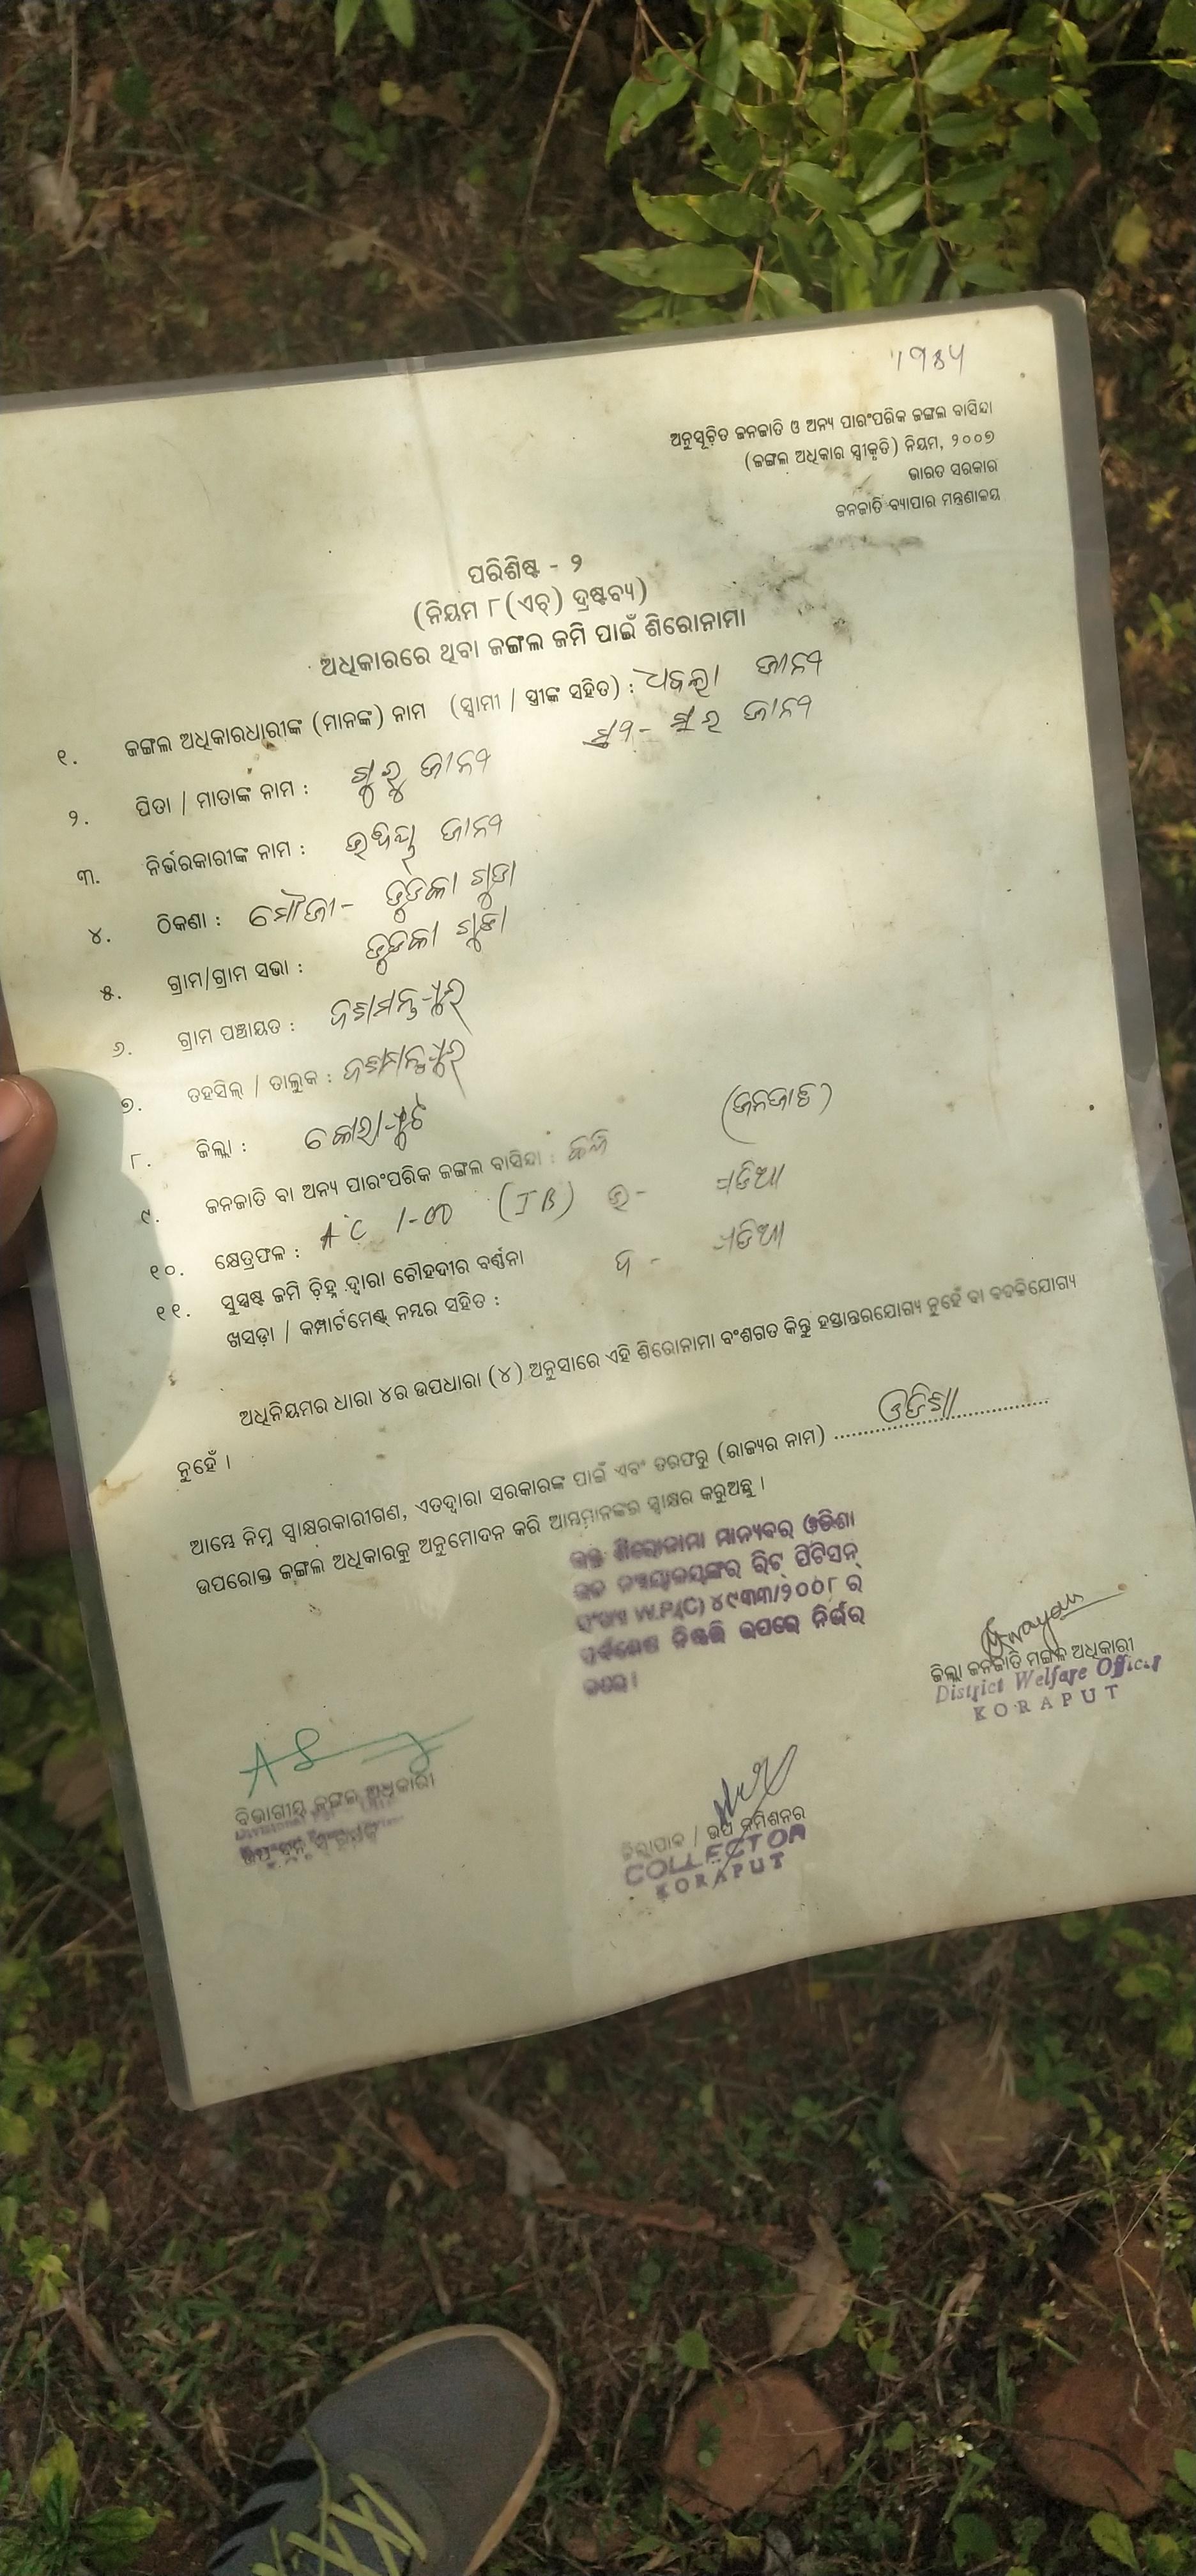 ୧୨୫୪
ଅନୁସୂଚିତ ଜନଜାତି ଓ ଅନ୍ୟ ପାରଂପରିକ ଜଙ୍ଗଲ ବାସିନ୍ଦା
(ଜଙ୍ଗଲ ଅଧିକାର ସ୍ୱୀକୃତି) ନିୟମ, ୨୦୦୭
ଭାରତ ସରକାର
ଜନଜାତି ବ୍ୟାପାର ମନ୍ତ୍ରଣାଳୟ
ପରିଶିଷ୍ଟ - ୨
(ନିୟମ ୮(ଏଚ୍) ଦ୍ରଷ୍ଟବ୍ୟ)
ଅଧିକାରରେ ଥିବା ଜଙ୍ଗଲ ଜମି ପାଇଁ ଶିରୋନାମା
୧. ଜଙ୍ଗଲ ଅଧିକାରଧାରୀଙ୍କ (ମାନଙ୍କ) ନାମ (ସ୍ୱାମୀ / ସ୍ତ୍ରୀଙ୍କ ସହିତ) : ଜାନୀ
ଜାନୀ
୨. ପିତା / ମାତାଙ୍କ ନାମ : ଗୁରୁ ଜାନୀ
୩. ନିର୍ଭରକାରୀଙ୍କ ନାମ : ଜାନୀ
୪. ଠିକଣା : ମୌଜା- ଡୁଡକା ଗୁଡା
୫. ଗ୍ରାମ/ଗ୍ରାମ ସଭା : ଡୁଡକା ଗୁଡା
୬. ଗ୍ରାମ ପଞ୍ଚାୟତ : ଦଶମନ୍ତପୁର
୭. ତହସିଲ୍ / ତାଲୁକ : ଦଶମନ୍ତପୁର
୮. ଜିଲ୍ଲା : କୋରାପୁଟ
୯. ଜନଜାତି ବା ଅନ୍ୟ ପାରଂପରିକ ଜଙ୍ଗଲ ବାସିନ୍ଦା : (ଜନଜାତି)
୧୦. କ୍ଷେତ୍ରଫଳ : AC 1-00 (JB) ଉ- ପଡିଆ
୧୧. ସୁସ୍ପଷ୍ଟ ଜମି ଚିହ୍ନ ଦ୍ୱାରା ଚୌହଦୀର ବର୍ଣ୍ଣନା ଦ - ପଡିଆ
ଖସଡ଼ା / କମ୍ପାର୍ଟମେଣ୍ଟ୍ ନମ୍ବର ସହିତ :
ଅଧିନିୟମର ଧାରା ୪ର ଉପଧାରା (୪) ଅନୁସାରେ ଏହି ଶିରୋନାମା ବଂଶଗତ କିନ୍ତୁ ହସ୍ତାନ୍ତରଯୋଗ୍ୟ ନୁହେଁ ବା ବଦଳିଯୋଗ୍ୟ
ନୁହେଁ ।
ଆମ୍ଭେ ନିମ୍ନ ସ୍ୱାକ୍ଷରକାରୀଗଣ, ଏତଦ୍ୱାରା ସରକାରଙ୍କ ପାଇଁ ଏବଂ ତରଫରୁ (ରାଜ୍ୟର ନାମ) ........ ଓଡିଶା ........
ଉପରୋକ୍ତ ଜଙ୍ଗଲ ଅଧିକାରକୁ ଅନୁମୋଦନ କରି ଆମ୍ଭମାନଙ୍କର ସ୍ୱାକ୍ଷର କରୁଅଛୁ ।
ଉକ୍ତ ଶିରୋନାମା ମାନ୍ୟବର ଓଡିଶା
ଉଚ୍ଚ ନ୍ୟାୟାଳୟଙ୍କର ରିଟ୍ ପିଟିସନ୍
ସଂଖ୍ୟା W.P.(C) ୪୯୩୩/୨୦୦୮ ର
ସର୍ବଶେଷ ନିଷ୍ପତ୍ତି ଉପରେ ନିର୍ଭର
ଜିଲ୍ଲା ଜନଜାତି ମଙ୍ଗଳ ଅଧିକାରୀ
District Welfare Officer
KORAPUT
ବିଭାଗୀୟ ଜଙ୍ଗଲ ଅଧିକାରୀ
ଜିଲ୍ଲାପାଳ / ଉପ କମିଶନର
COLLECTOR
KORAPUT